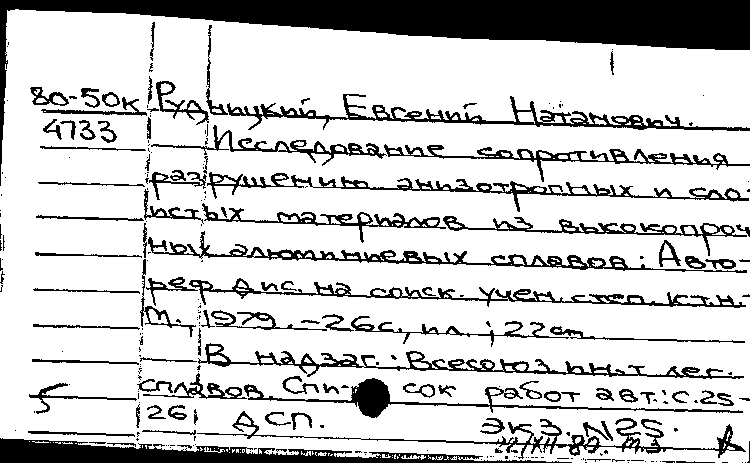 80-50к Рудницкий, Евгений Натанович.
4733 Исследование сопротивления
разрушению анизотропных и сло-
истых материалов из высокопроч-
ных алюминиевых сплавов: Авто-
реф. дис. на соиск. учен. степ. к.т.н.-
М., 1979. -26с., ил. ; 22см.
В надзаг.: Всесоюз. ин-т лег.
сплавов. Спи- сок работ авт.: с.25-
5 26 ДСП. экз. N25.
22/XII-80. т.з.